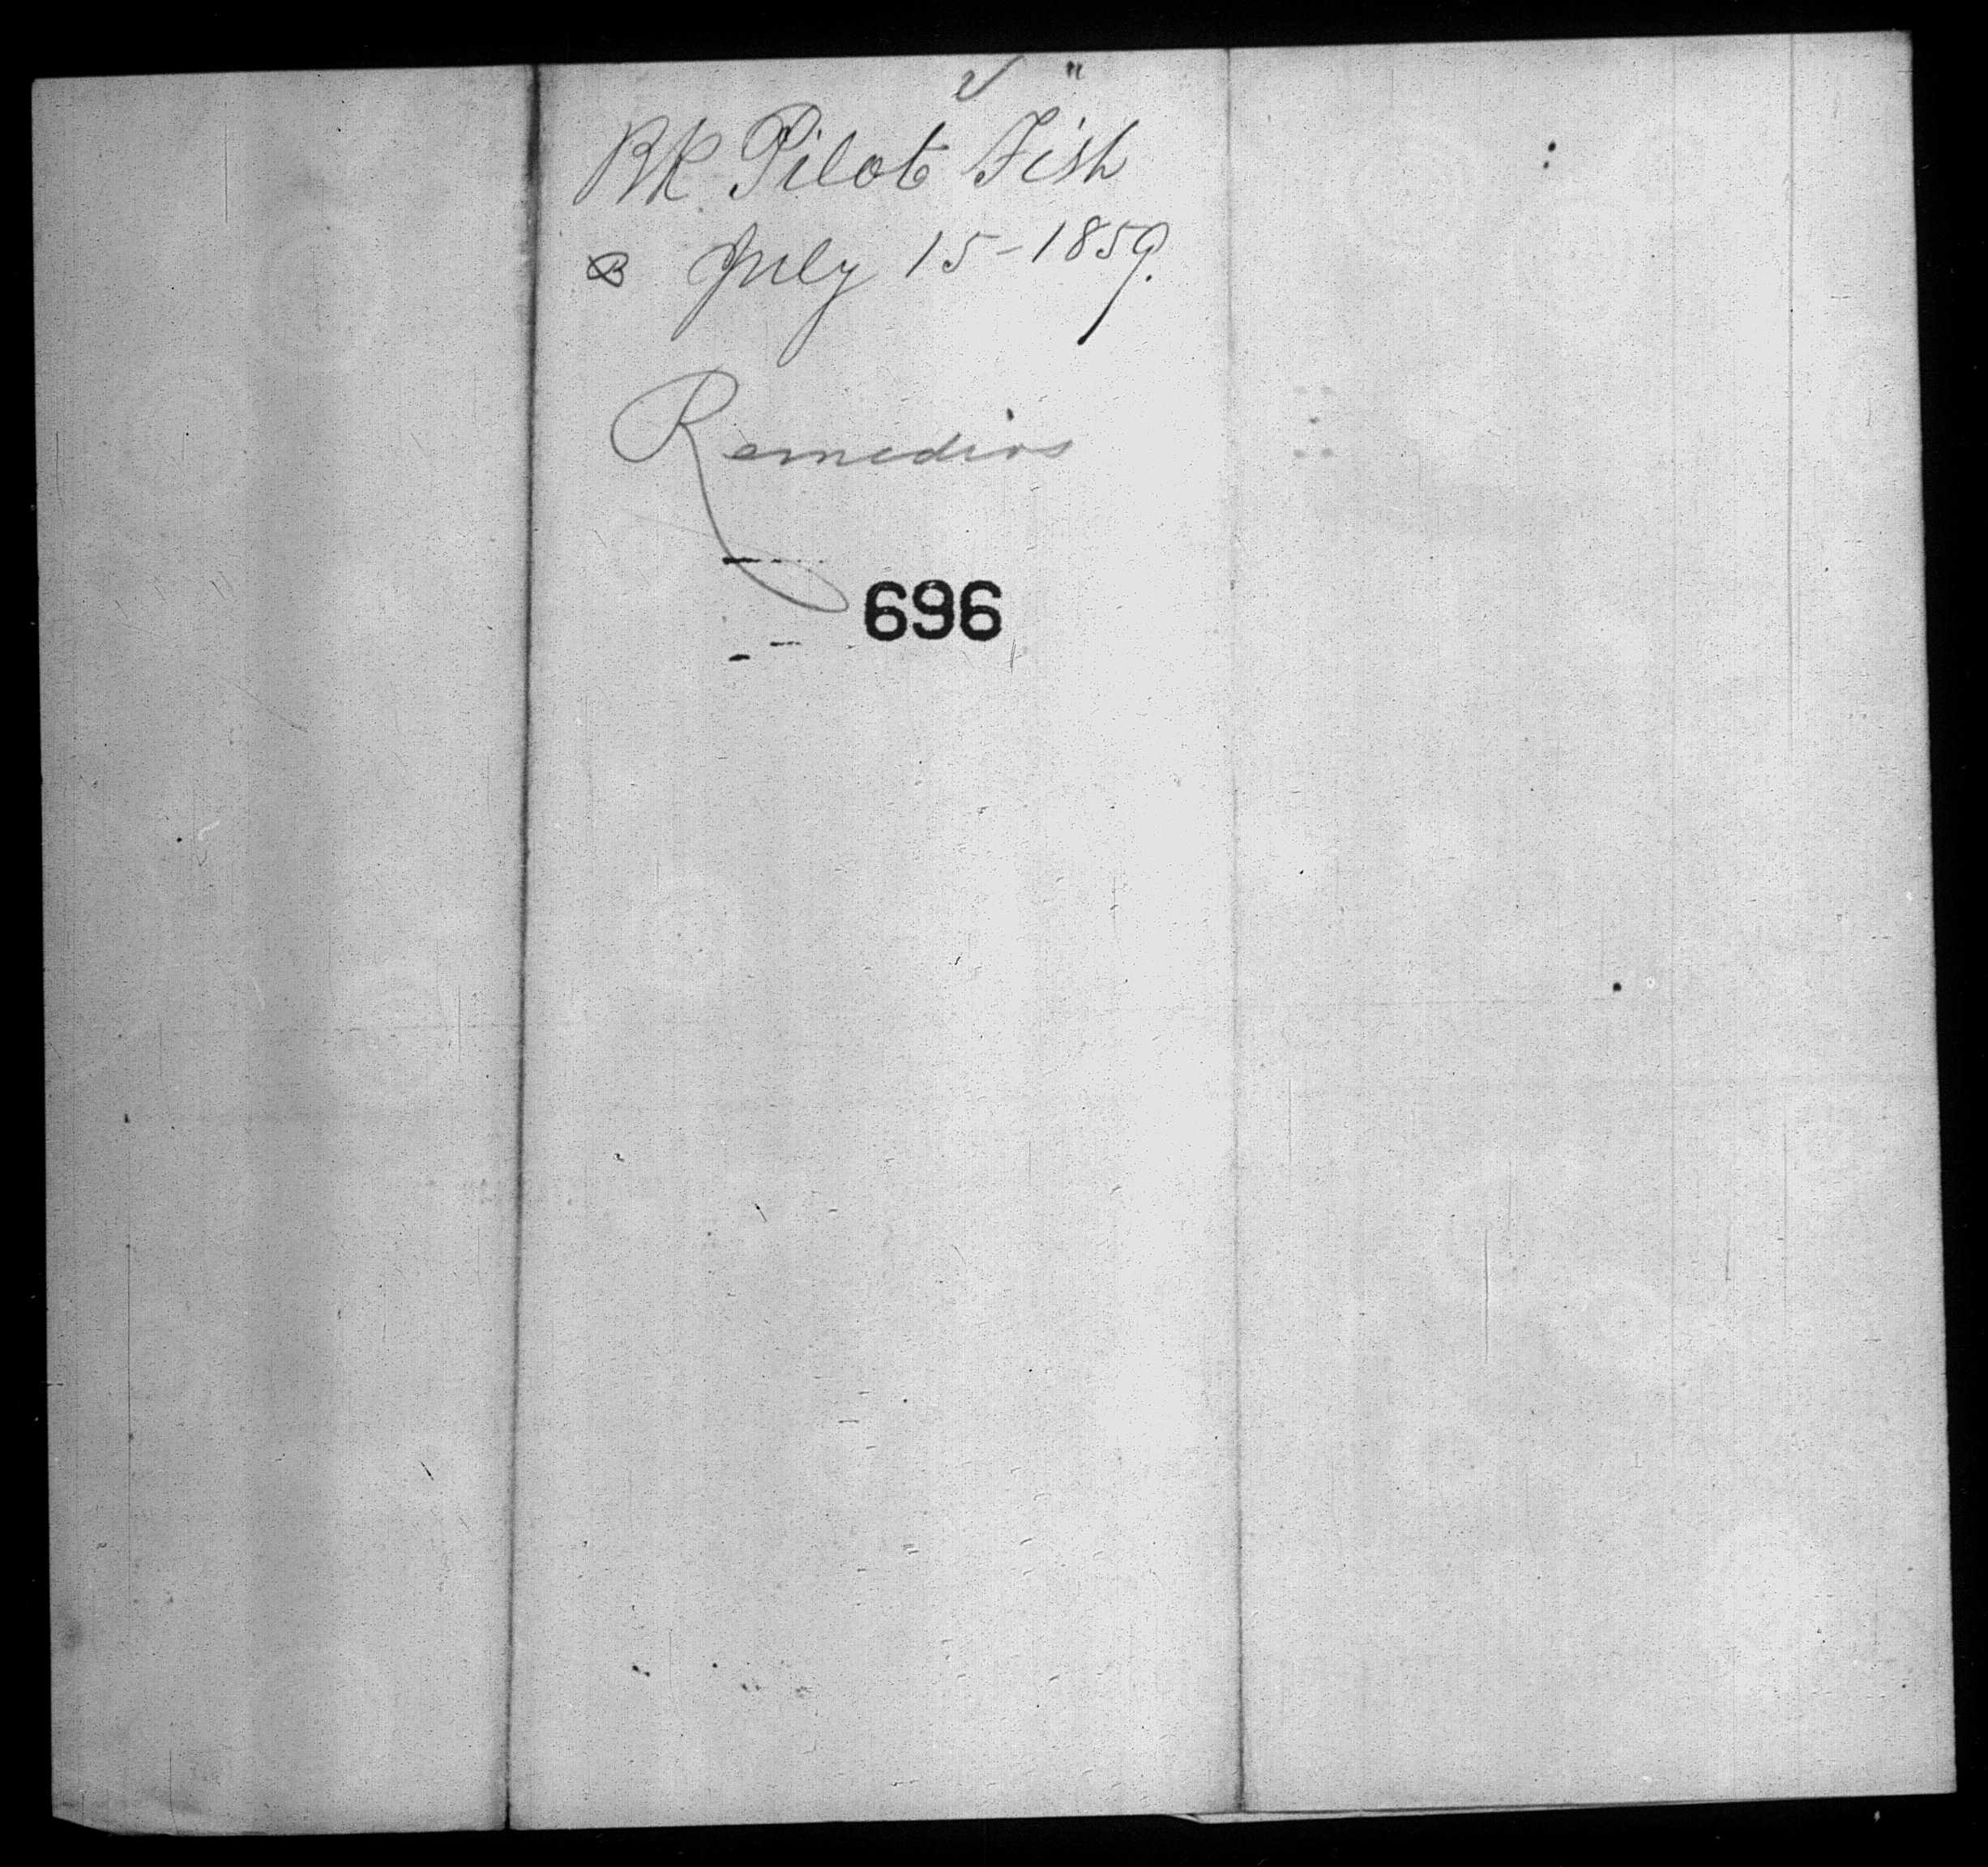 Bk Pilot Fish
B July 15-1859.
Remedios
696